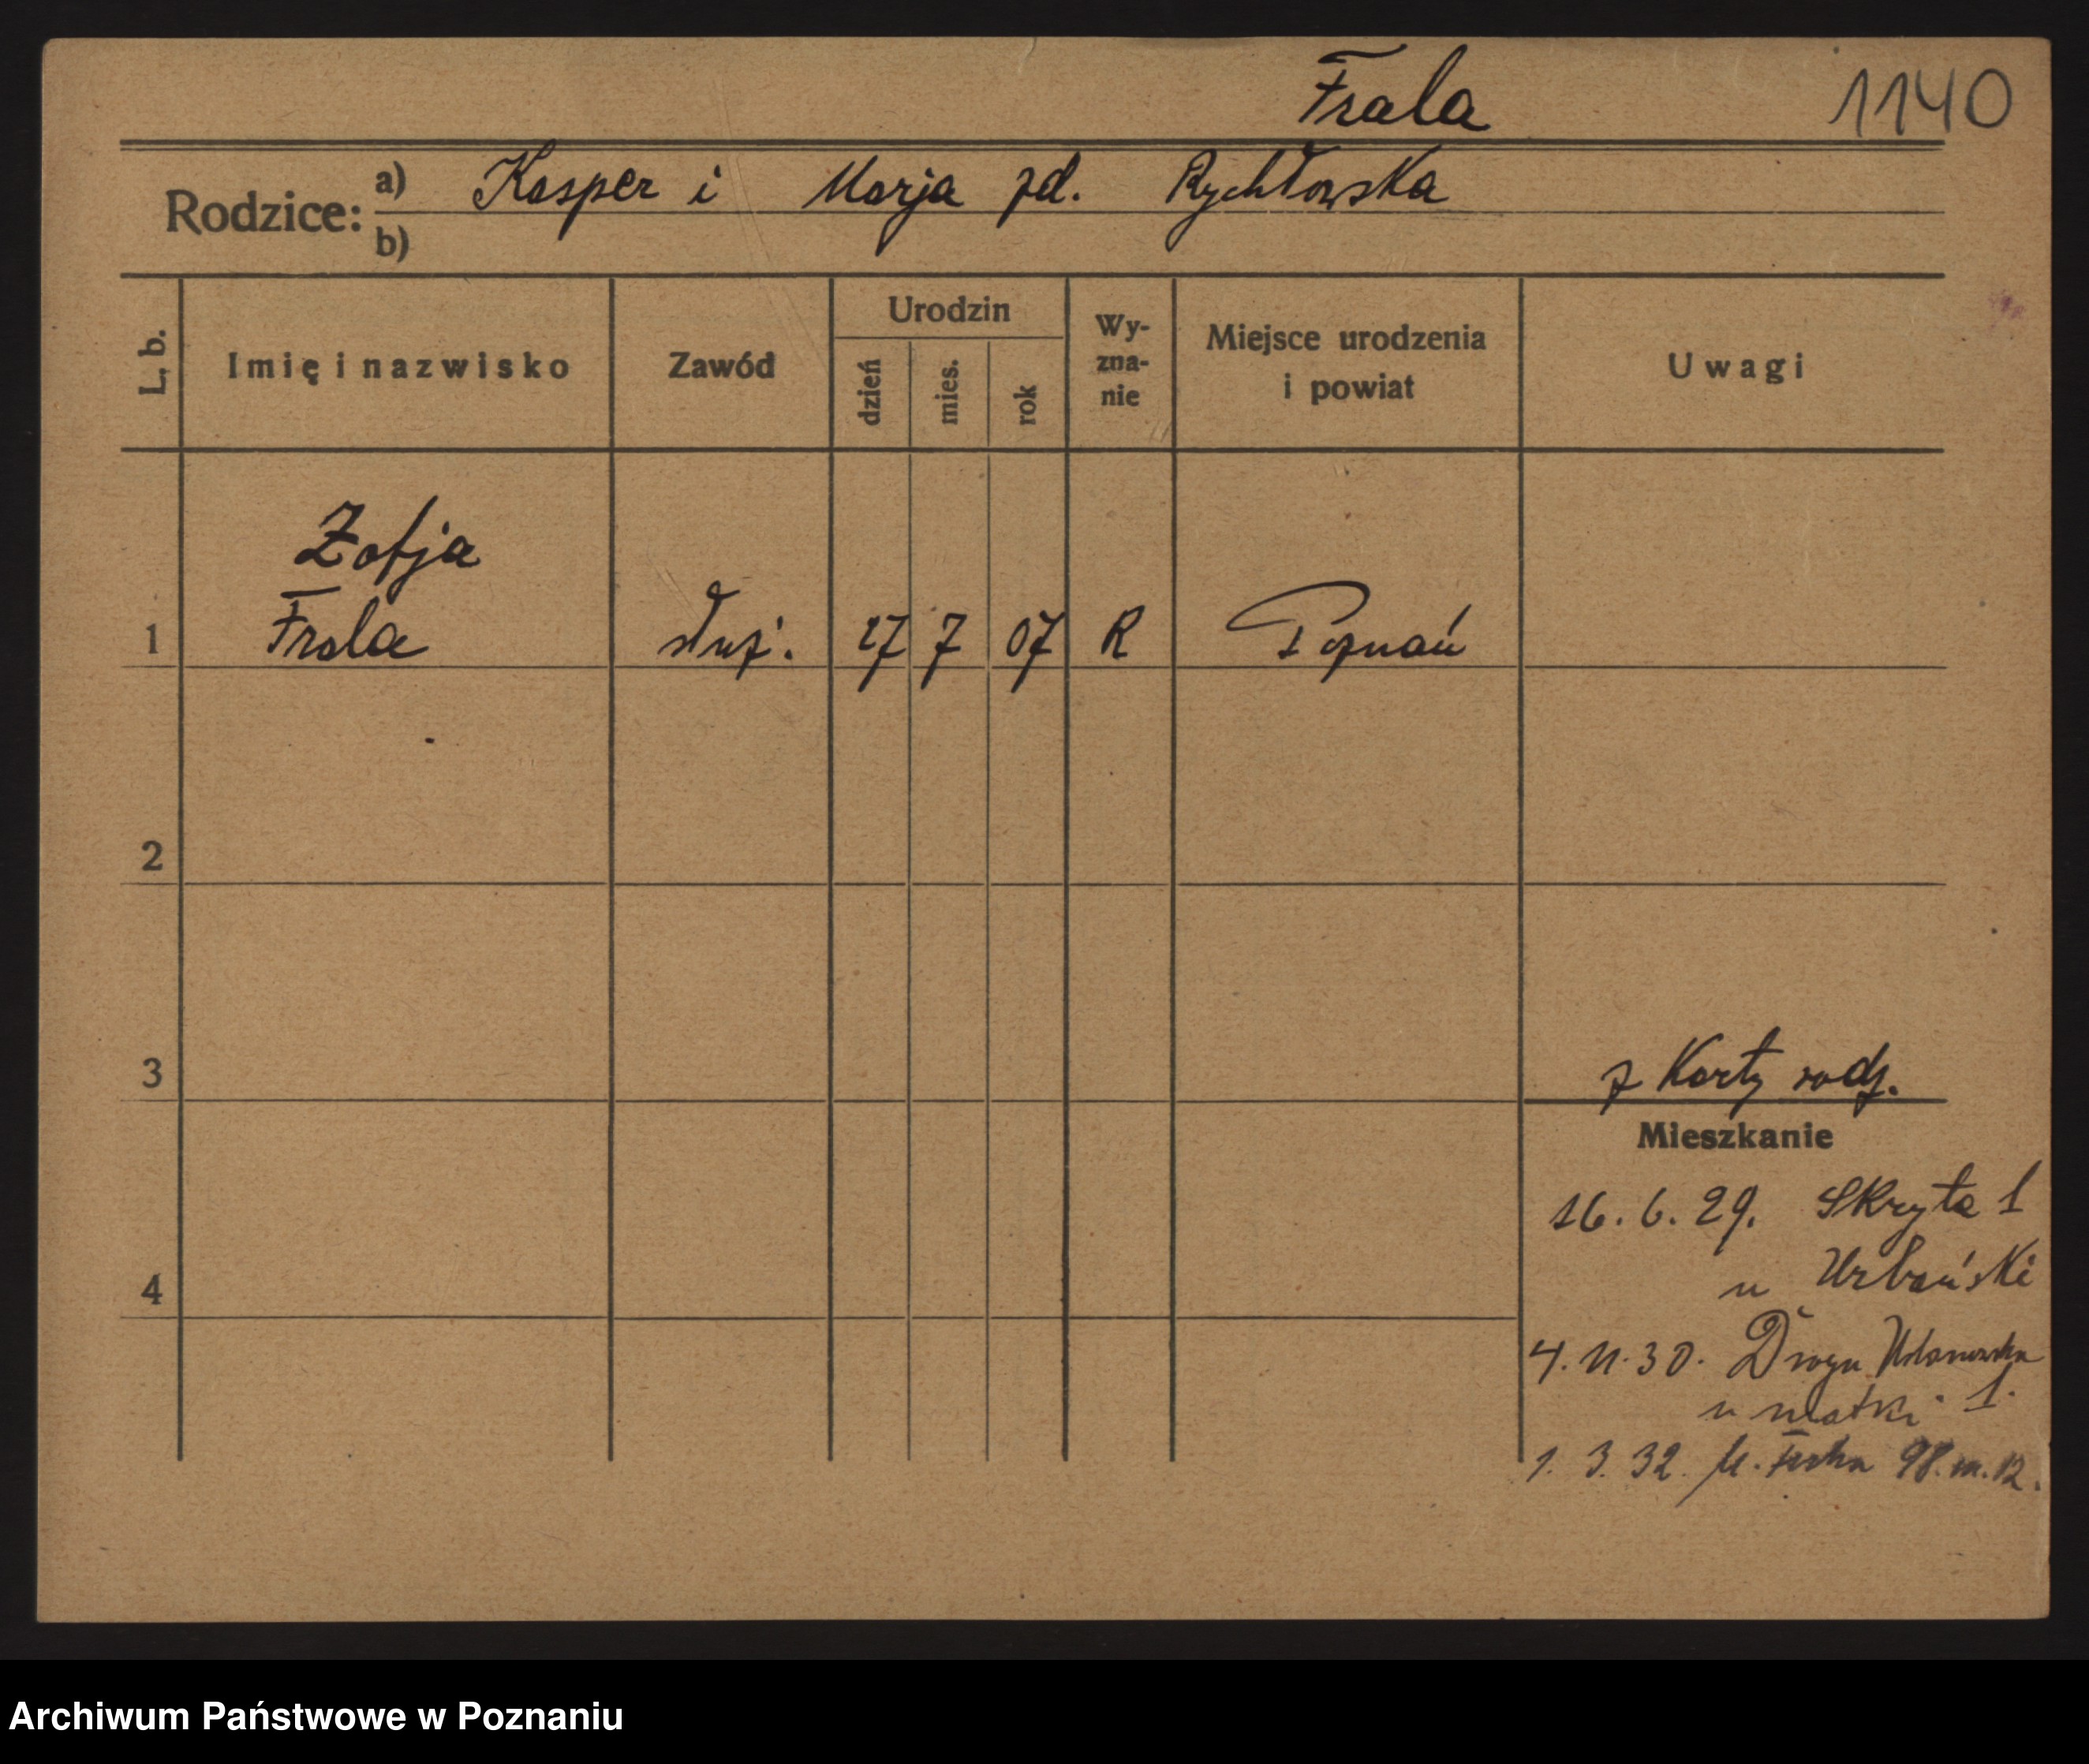 Frala
1140
Rodzice: a) Kasper i Marja zd. Rychłowska
b)
L. b.
Imię i nazwisko
Zawód
Urodzin
dzień
mies.
rok
Wy-
zna-
nie
Miejsce urodzenia
i powiat
Uwagi
Zofja
1 Frala służ. 27 7 07 R Poznań
2
3
z Karty rodz.
Mieszkanie
16. 6. 29. Skryta 1
u Urbański
4
4. 11. 30. Droga
u matki 1.
1. 3. 32. 98. m. 12.
Archiwum Państwowe w Poznaniu